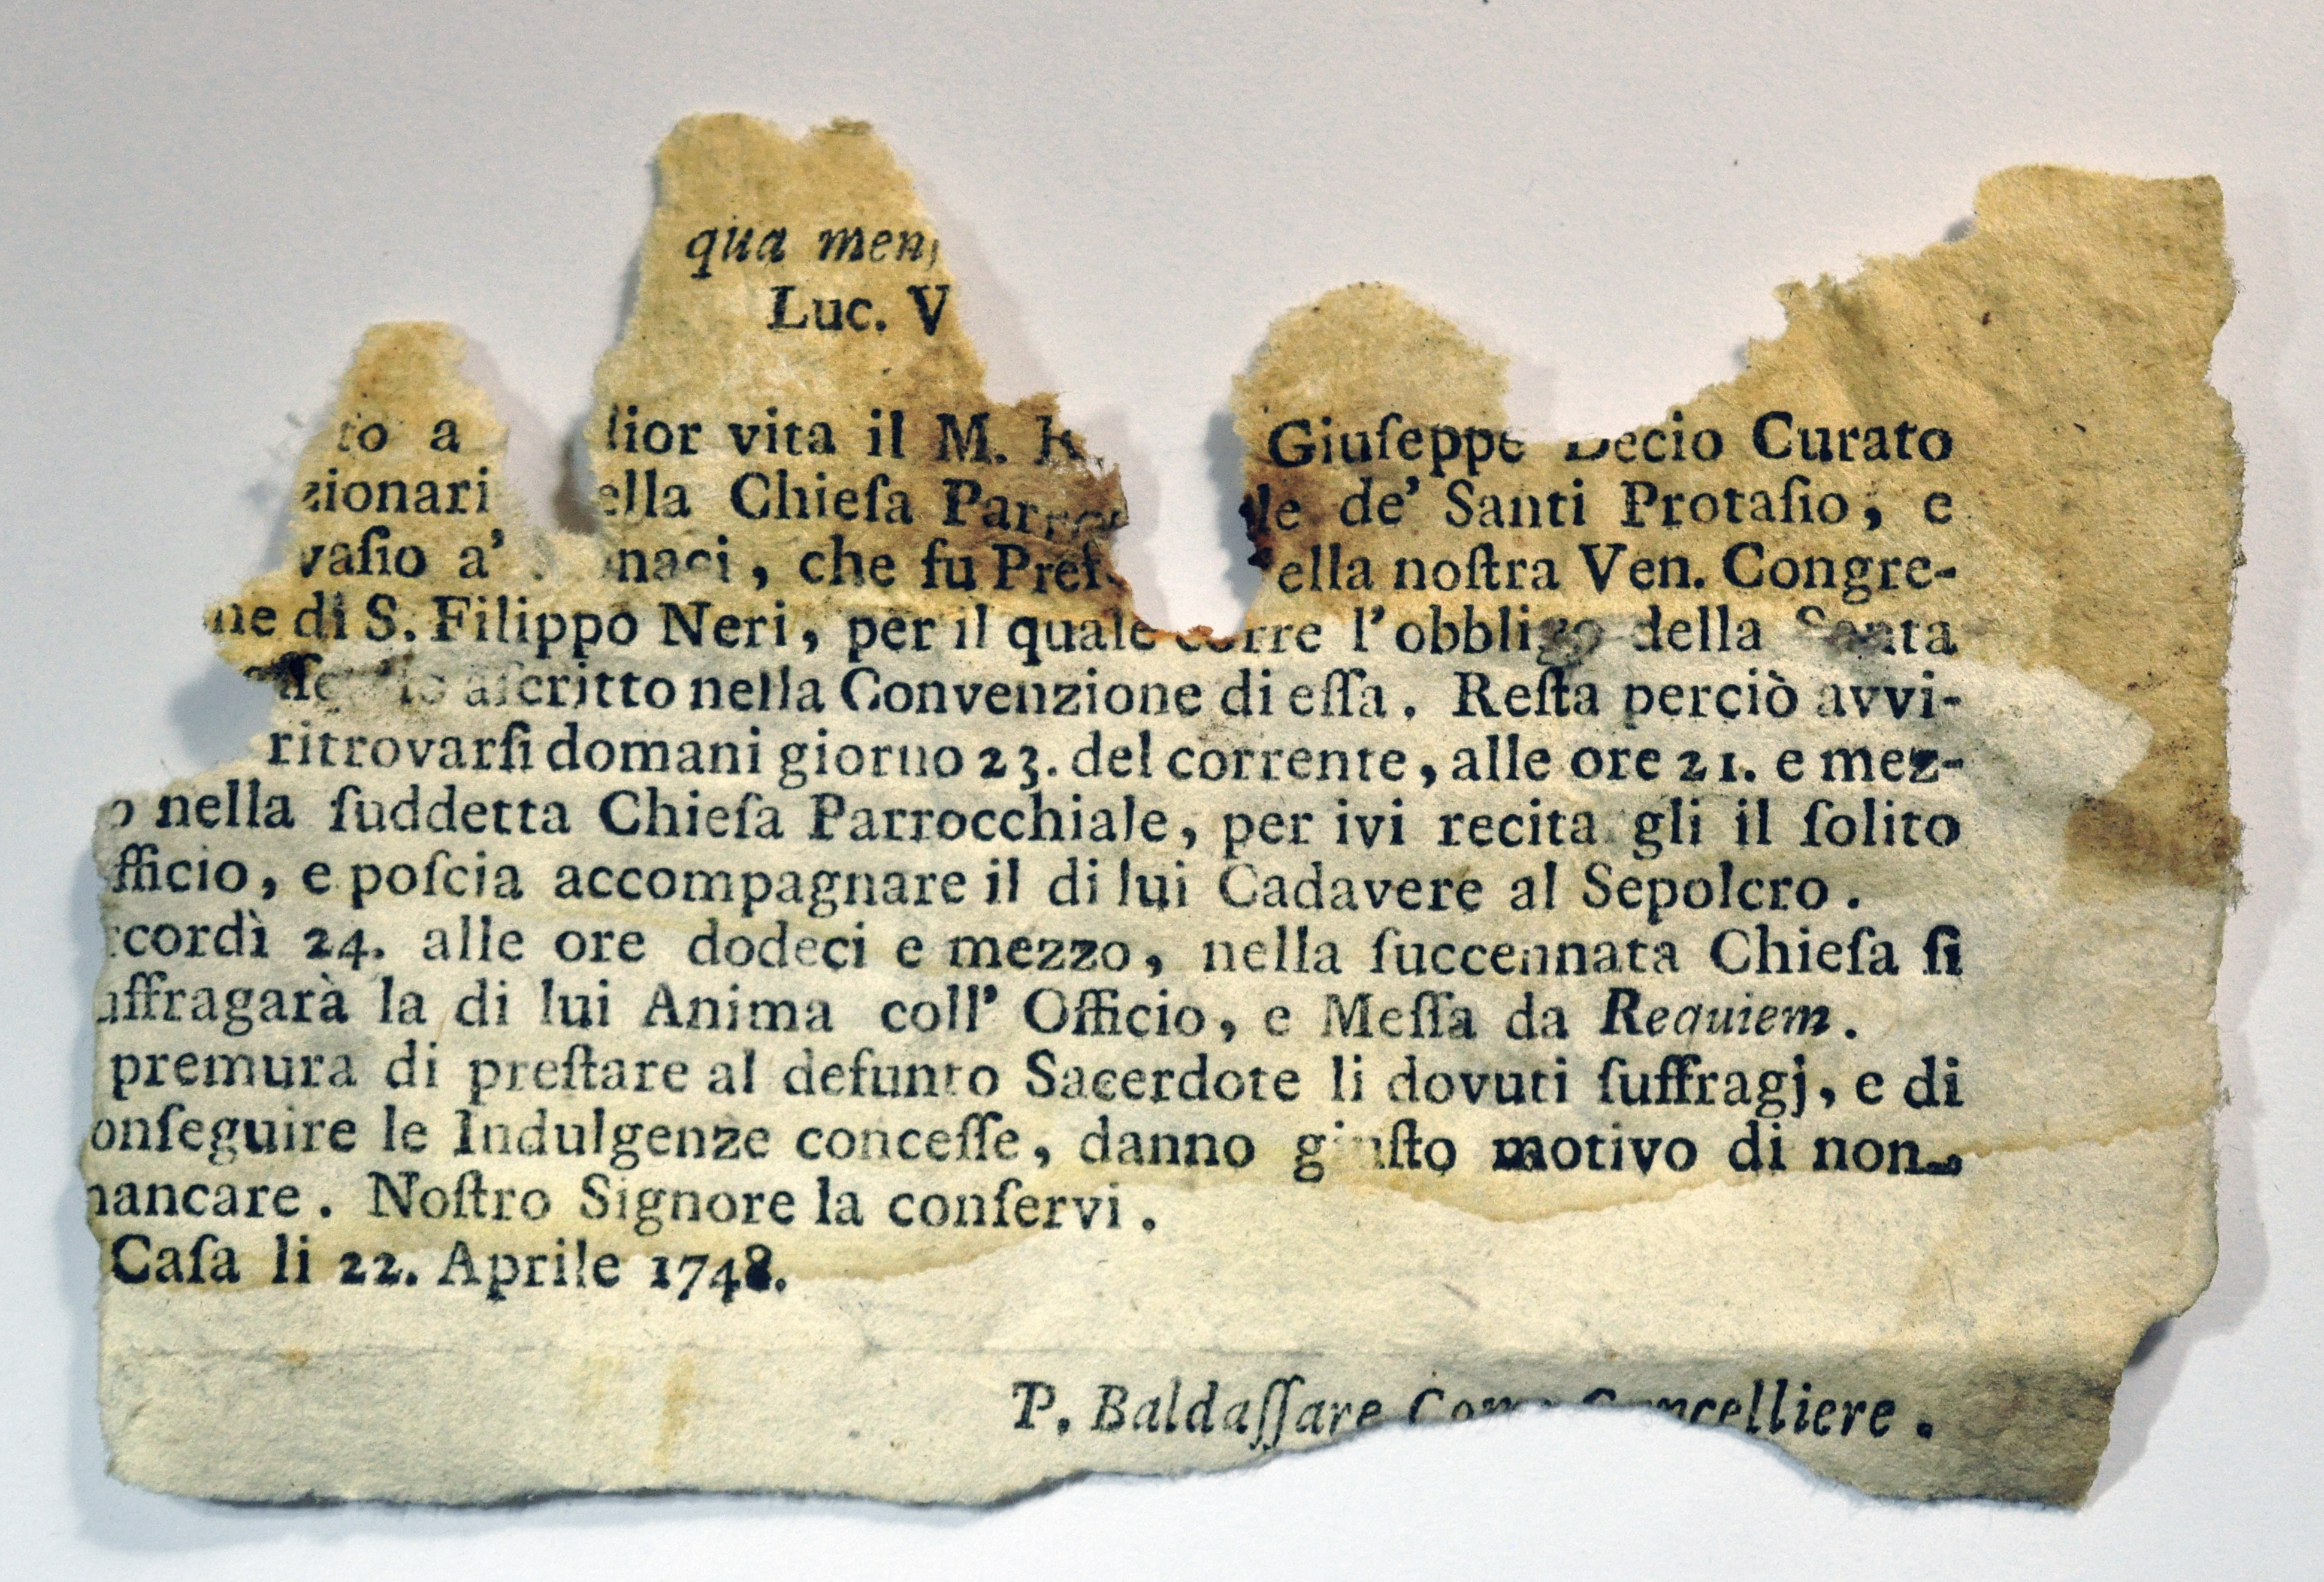 qua men
Luc. V
to a lior vita il M. R. Giuſeppe Decio Curato
zionari ella Chieſa de' Santi Protaſio, e
vaſio a' naci, che fu Pref ella noſtra Ven. Congre-
ne di S. Filippo Neri, per il quale corre l'obbligo della Santa
aſcritto nella Convenzione di eſſa. Reſta perciò avvi-
ritrovarſi domani giorno 23. del corrente, alle ore 21. e mez-
o nella ſuddetta Chieſa Parrocchiale, per ivi recita gli il ſolito
fficio, e poſcia accompagnare il di lui Cadavere al Sepolcro.
cordì 24. alle ore dodeci e mezzo, nella ſuccennata Chieſa ſi
uffragarà la di lui Anima coll' Officio, e Meſſa da Requiem.
premura di preſtare al defunto Sacerdote li dovuti ſuffragj, e di
onſeguire le Indulgenze conceſſe, danno giuſto motivo di non
mancare. Noſtro Signore la conſervi.
Caſa li 22. Aprile 1748.
P. Baldaſſare Cancelliere.